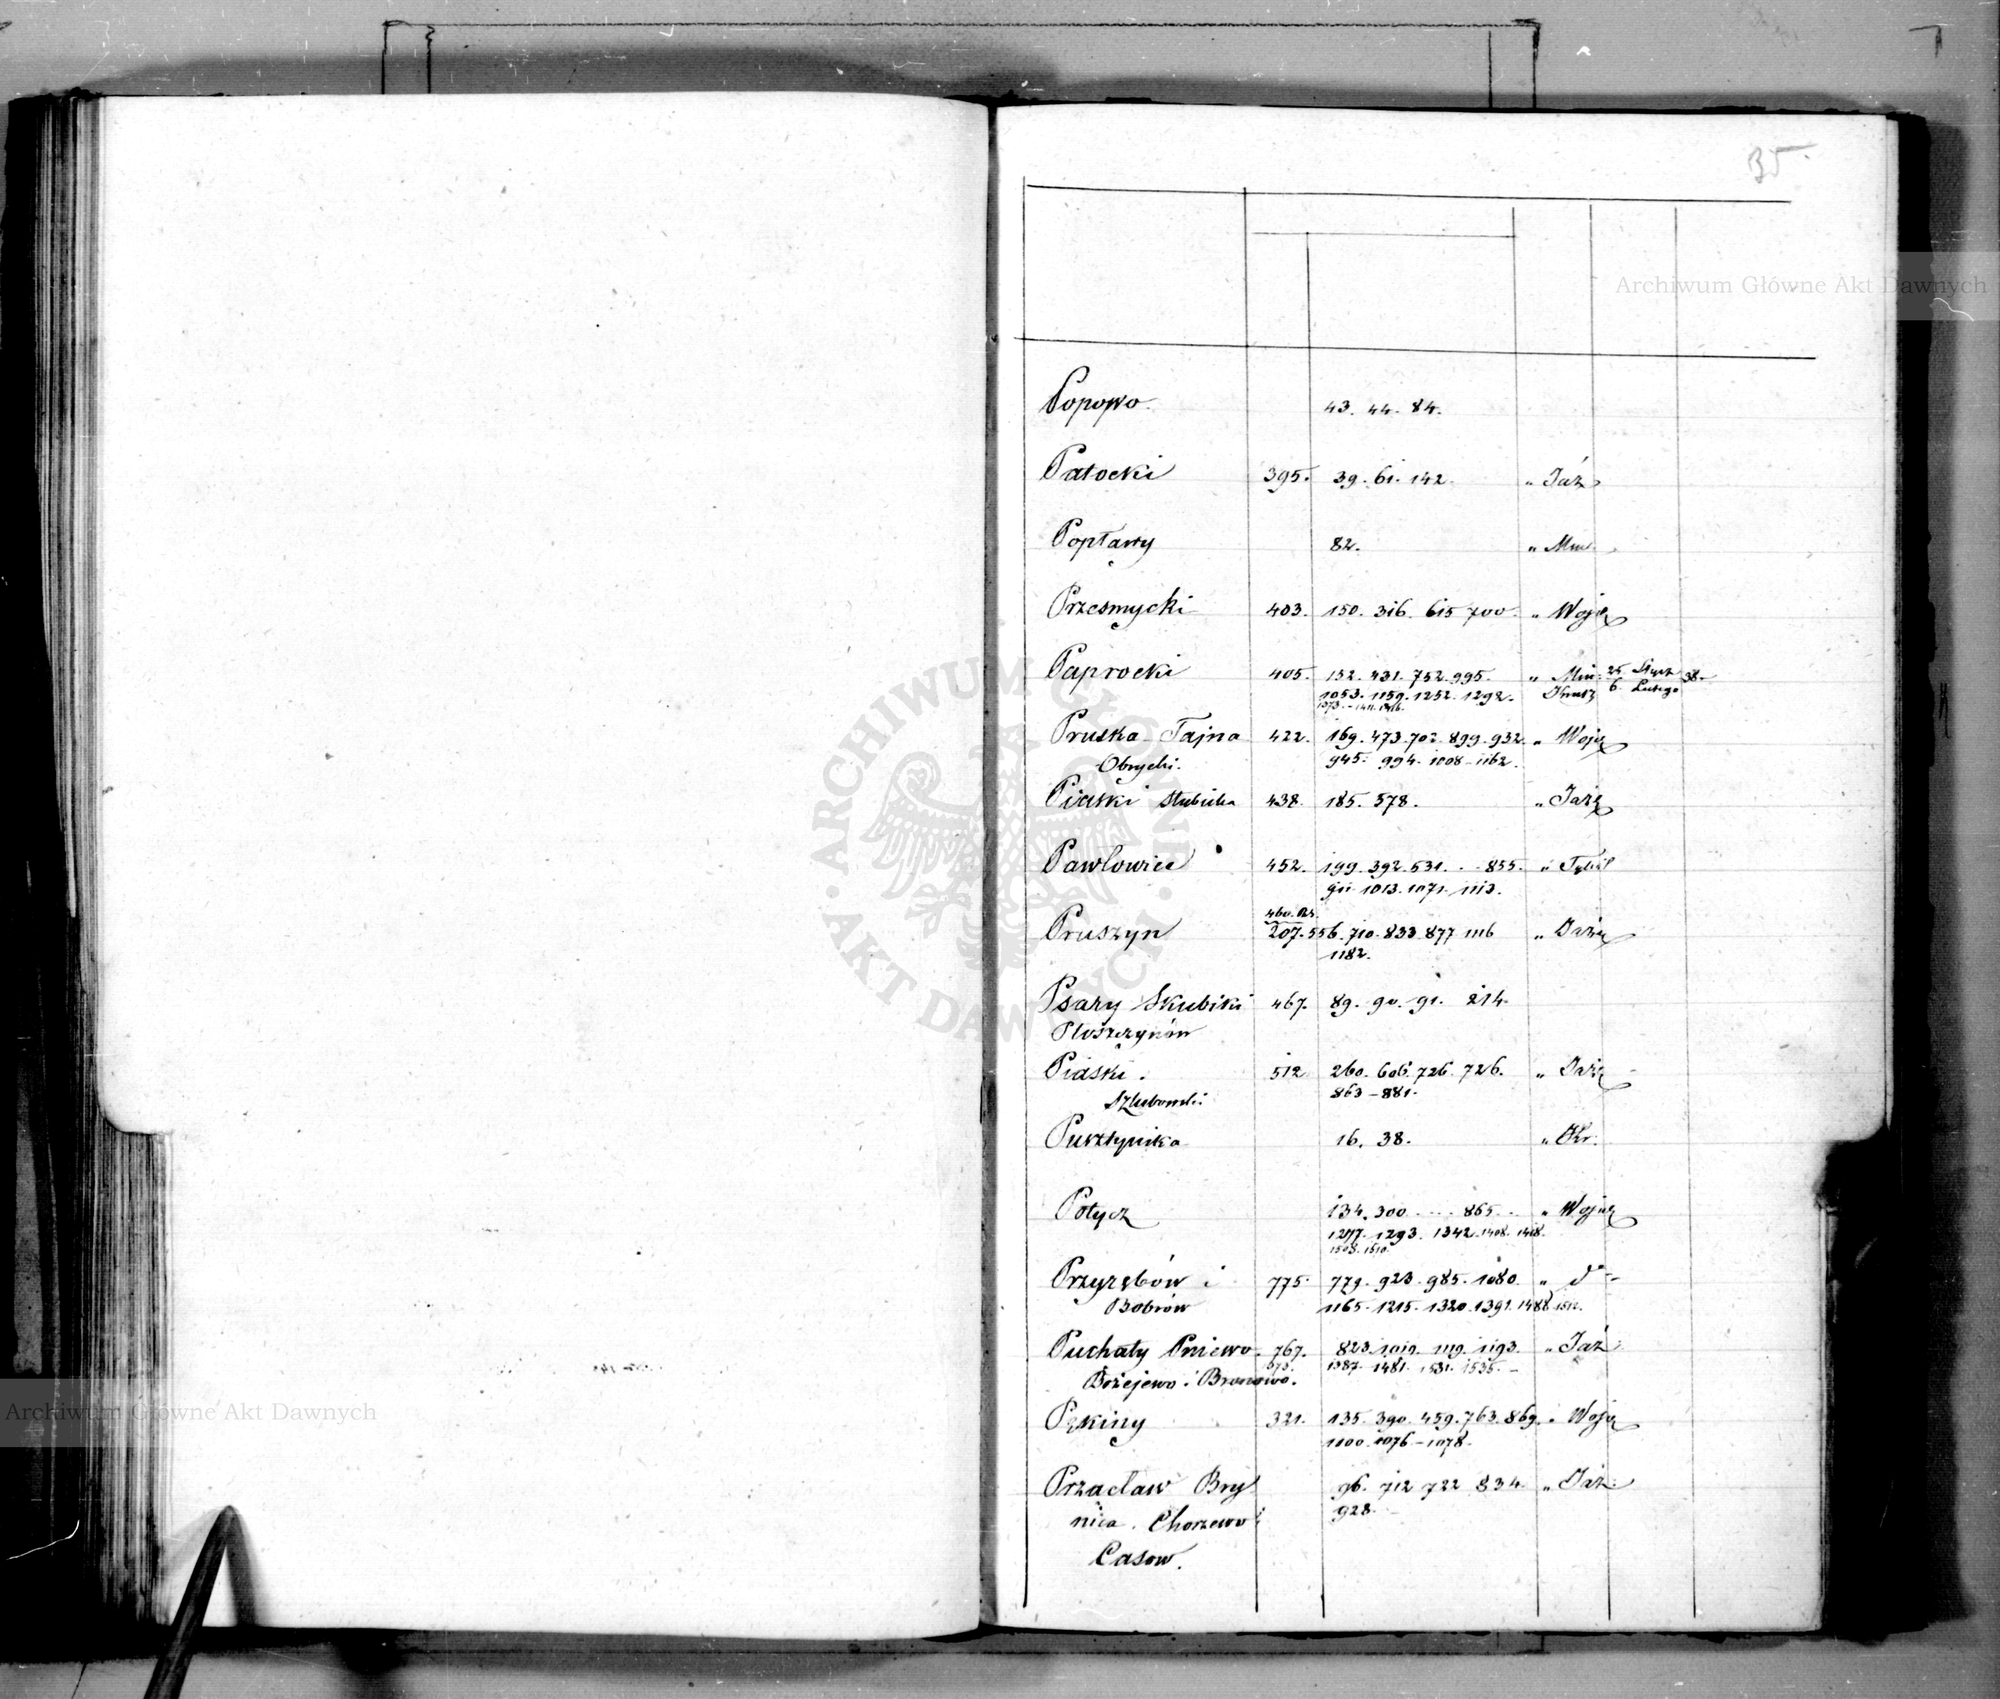 35.
Archiwum Główne Akt Dawnych
Popowo. 43. 44. 84.
Patocki 395. 39. 61. 142. " Jaź
Popławy 82. " Min.
Przesmycki 403. 150. 316. 615 700. " Wojc
Paprocki 405. 152. 431. 752. 995. " Min. 25 Stycz 38.
1053. 1159. 1252. 1292. 6. Lutego
1373. 1411. 1416.
Pruska Tajna 422. 169. 473. 702. 899. 932. " Wojc
Obrycki. 945. 994. 1008 – 1162.
Piaski 438. 185. 578. " Jaźc
Pawłowice 452. 199. 392. 531. . . 855. "
911. 1013. 1071. 1113.
460.
Pruszyn 207. 556. 710. 833. 877 1116 " Jaźc
1182.
Psary Skubiki 467. 89. 90. 91. 214.
Płoszczynów
Piaski. 512 260. 606. 726. 726. " Jaźc
Szlubowski. 863 – 881.
Pustynika 16. 38. " Okr.
Potycz 134. 300 . . . . 865. . " Wojc
1277. 1293. 1342. 1408. 1428.
1508. 1510.
Przyrębów i 775. 779. 923. 985. 1080. " do
Bobrów 1165. 1215. 1320. 1391. 1488. 1512.
Puchały Pniewo 767. 823. 1019. 1119. 1193. " Jaź
1387. 1481. 1531. 1535. –
Bożejewo i Bronowo.
Pękiny 321. 135. 390. 459. 763. 869. " Wojc
1100. 1076 – 1078.
Przacław Bry 96. 712 722 834. " Jaź.
nica. Chorzewo 928.
Casow.
ARCHIWUM GŁÓWNE AKT DAWNYCH
Archiwum Główne Akt Dawnych